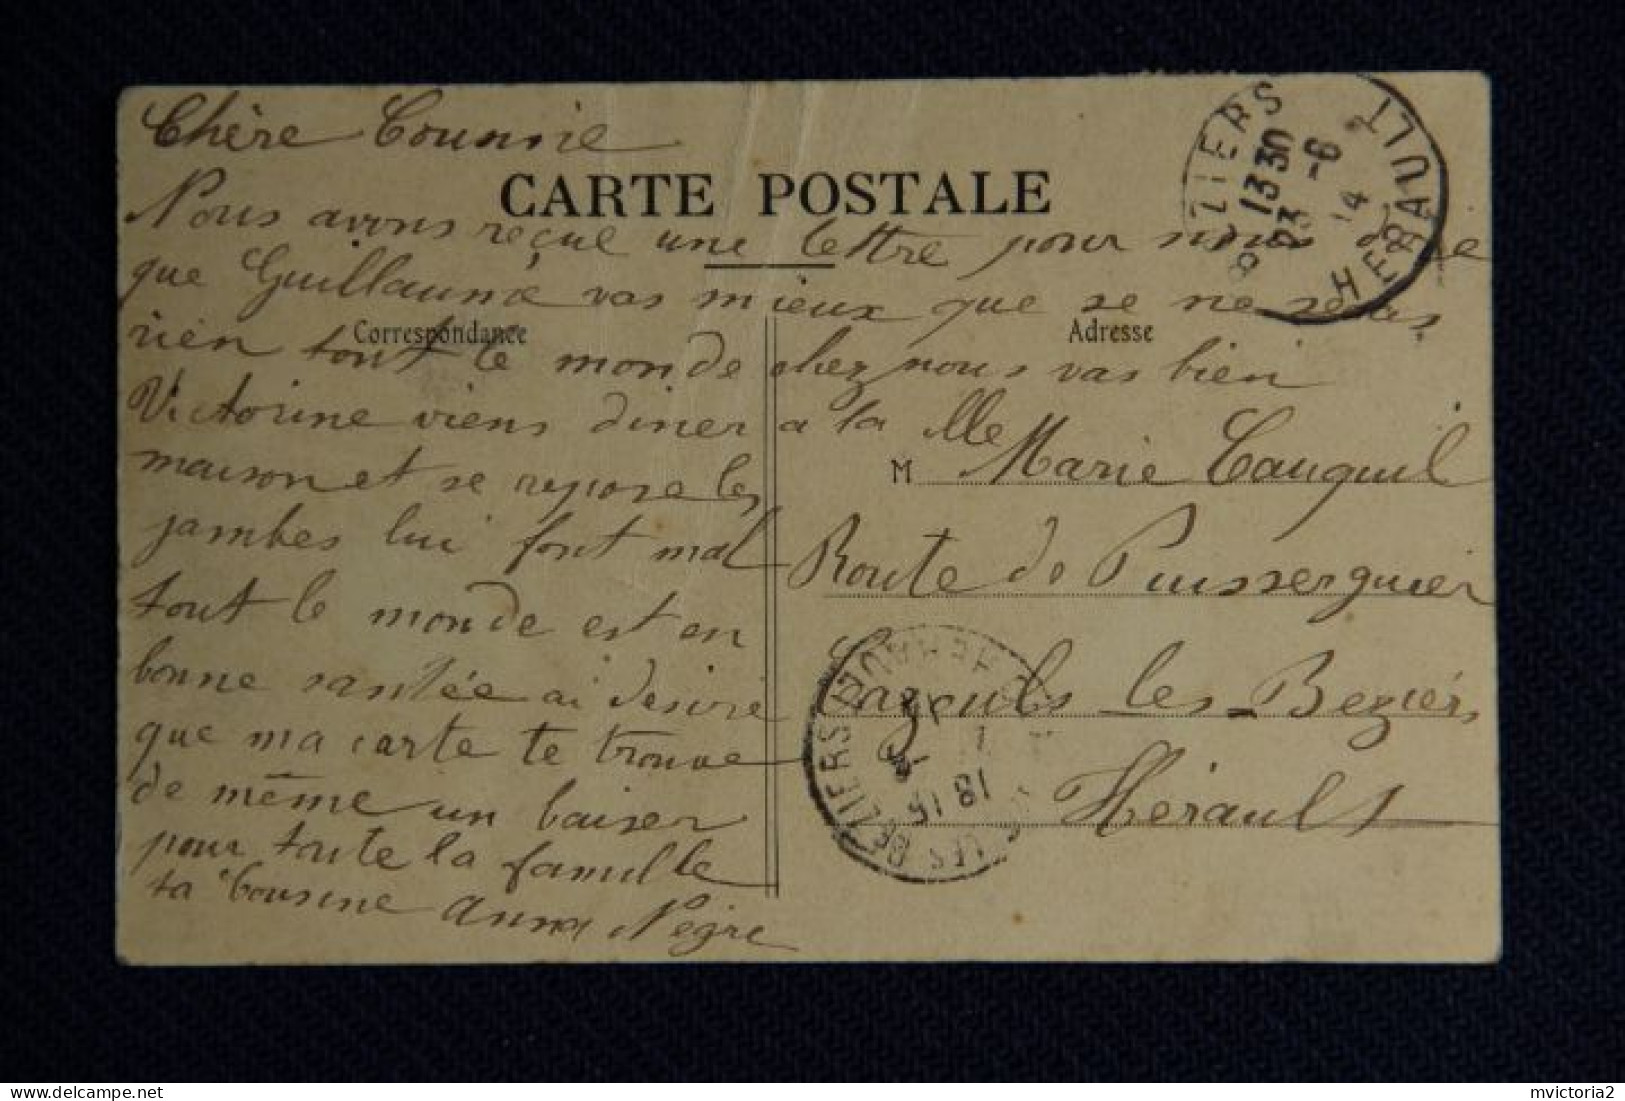 Chère Cousine
CARTE POSTALE
Nous avons reçue une lettre pour nous dire
que Guillaume vas mieux que se ne seras
Correspondance
Adresse
rien tout le monde chez nous vas bien
Victorine viens diner a la
maison et se repose les
jambes lui font mal
tout le monde est en
bonne santée ai desire
que ma carte te trouve
de même un baiser
pour toute la famille
ta cousine Anna Nègre
M Mlle Marie Cauquil
Route de Puisserguier
Cazouls les Beziérs
Hérault
BEZIERS HERAULT
13 30
23 -6
14
LES BEZIERS HERAULT
18 15
mvictoria2